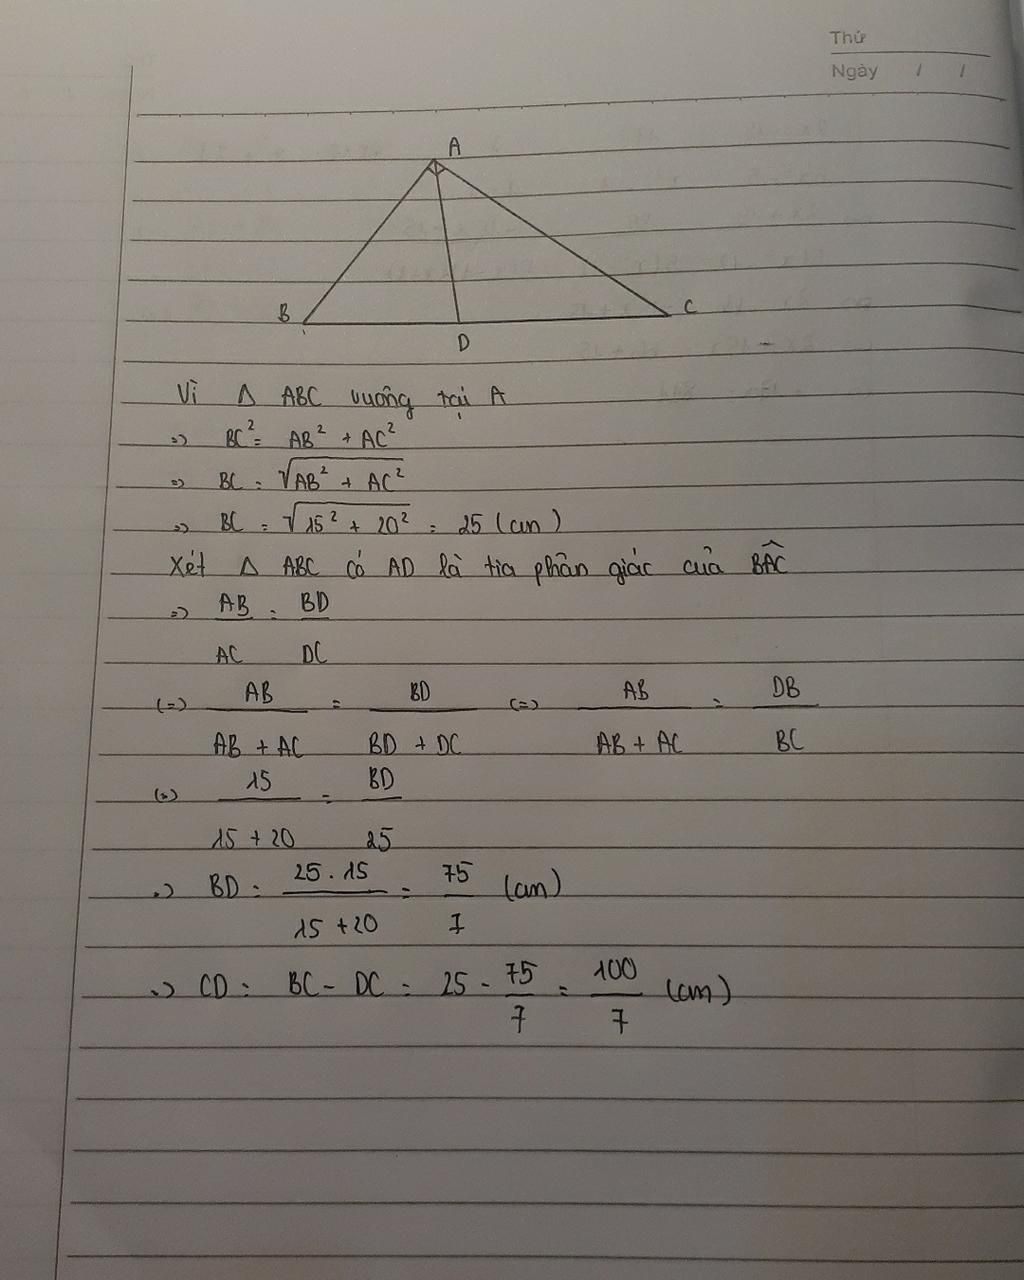 Thứ
Ngày / /
A
B
C
D
Vì Δ ABC vuông tại A
=> BC² = AB² + AC²
=> BC = √(AB² + AC²)
=> BC = √(15² + 20²) = 25 (cm)
Xét Δ ABC có AD là tia phân giác của BÂC
=> AB/AC = BD/DC
(=) AB/(AB + AC) = BD/(BD + DC) (=) AB/(AB + AC) = DB/BC
(=) 15/(15 + 20) = BD/25
=> BD = (25 . 15)/(15 + 20) = 75/7 (cm)
=> CD = BC - DC = 25 - 75/7 = 100/7 (cm)